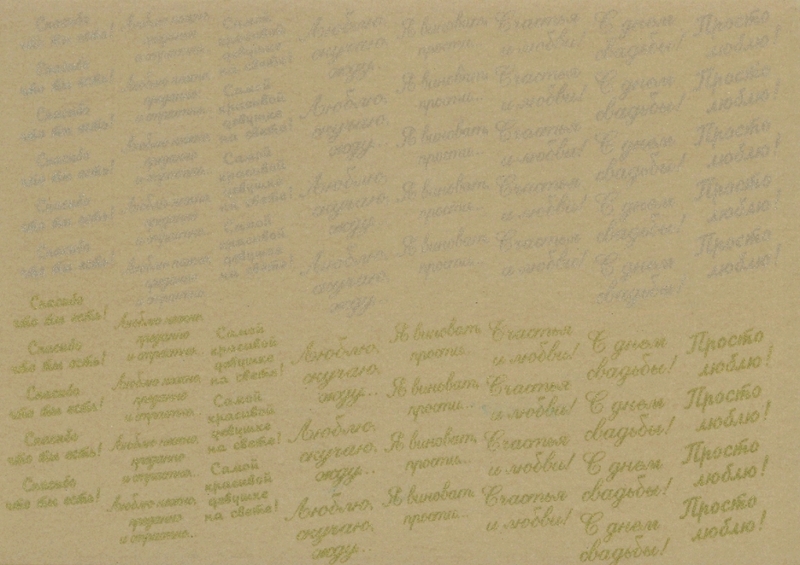 Спасибо
что ты есть!
Спасибо
что ты есть!
Спасибо
что ты есть!
Спасибо
что ты есть!
Спасибо
что ты есть!
Спасибо
что ты есть!
Спасибо
что ты есть!
Спасибо
что ты есть!
Спасибо
что ты есть!
Спасибо
что ты есть!
Спасибо
что ты есть!
Люблю нежно,
преданно
и страстно...
Люблю нежно,
преданно
и страстно...
Люблю нежно,
преданно
и страстно...
Люблю нежно,
преданно
и страстно...
Люблю нежно,
преданно
и страстно...
Люблю нежно,
преданно
и страстно...
Люблю нежно,
преданно
и страстно...
Люблю нежно,
преданно
и страстно...
Люблю нежно,
преданно
и страстно...
Самой
красивой
девушке
на свете!
Самой
красивой
девушке
на свете!
Самой
красивой
девушке
на свете!
Самой
красивой
девушке
на свете!
Самой
красивой
девушке
на свете!
Самой
красивой
девушке
на свете!
Самой
красивой
девушке
на свете!
Люблю,
скучаю,
жду...
Люблю,
скучаю,
жду...
Люблю,
скучаю,
жду...
Люблю,
скучаю,
жду...
Люблю,
скучаю,
жду...
Люблю,
скучаю,
жду...
Люблю,
скучаю,
жду...
Я виноват,
прости...
Я виноват,
прости...
Я виноват,
прости...
Я виноват,
прости...
Я виноват,
прости...
Я виноват,
прости...
Я виноват,
прости...
Я виноват,
прости...
Я виноват,
прости...
Счастья
и любви!
Счастья
и любви!
Счастья
и любви!
Счастья
и любви!
Счастья
и любви!
Счастья
и любви!
Счастья
и любви!
Счастья
и любви!
Счастья
и любви!
С днем
свадьбы!
С днем
свадьбы!
С днем
свадьбы!
С днем
свадьбы!
С днем
свадьбы!
С днем
свадьбы!
С днем
свадьбы!
С днем
свадьбы!
С днем
свадьбы!
Просто
люблю!
Просто
люблю!
Просто
люблю!
Просто
люблю!
Просто
люблю!
Просто
люблю!
Просто
люблю!
Просто
люблю!
Просто
люблю!